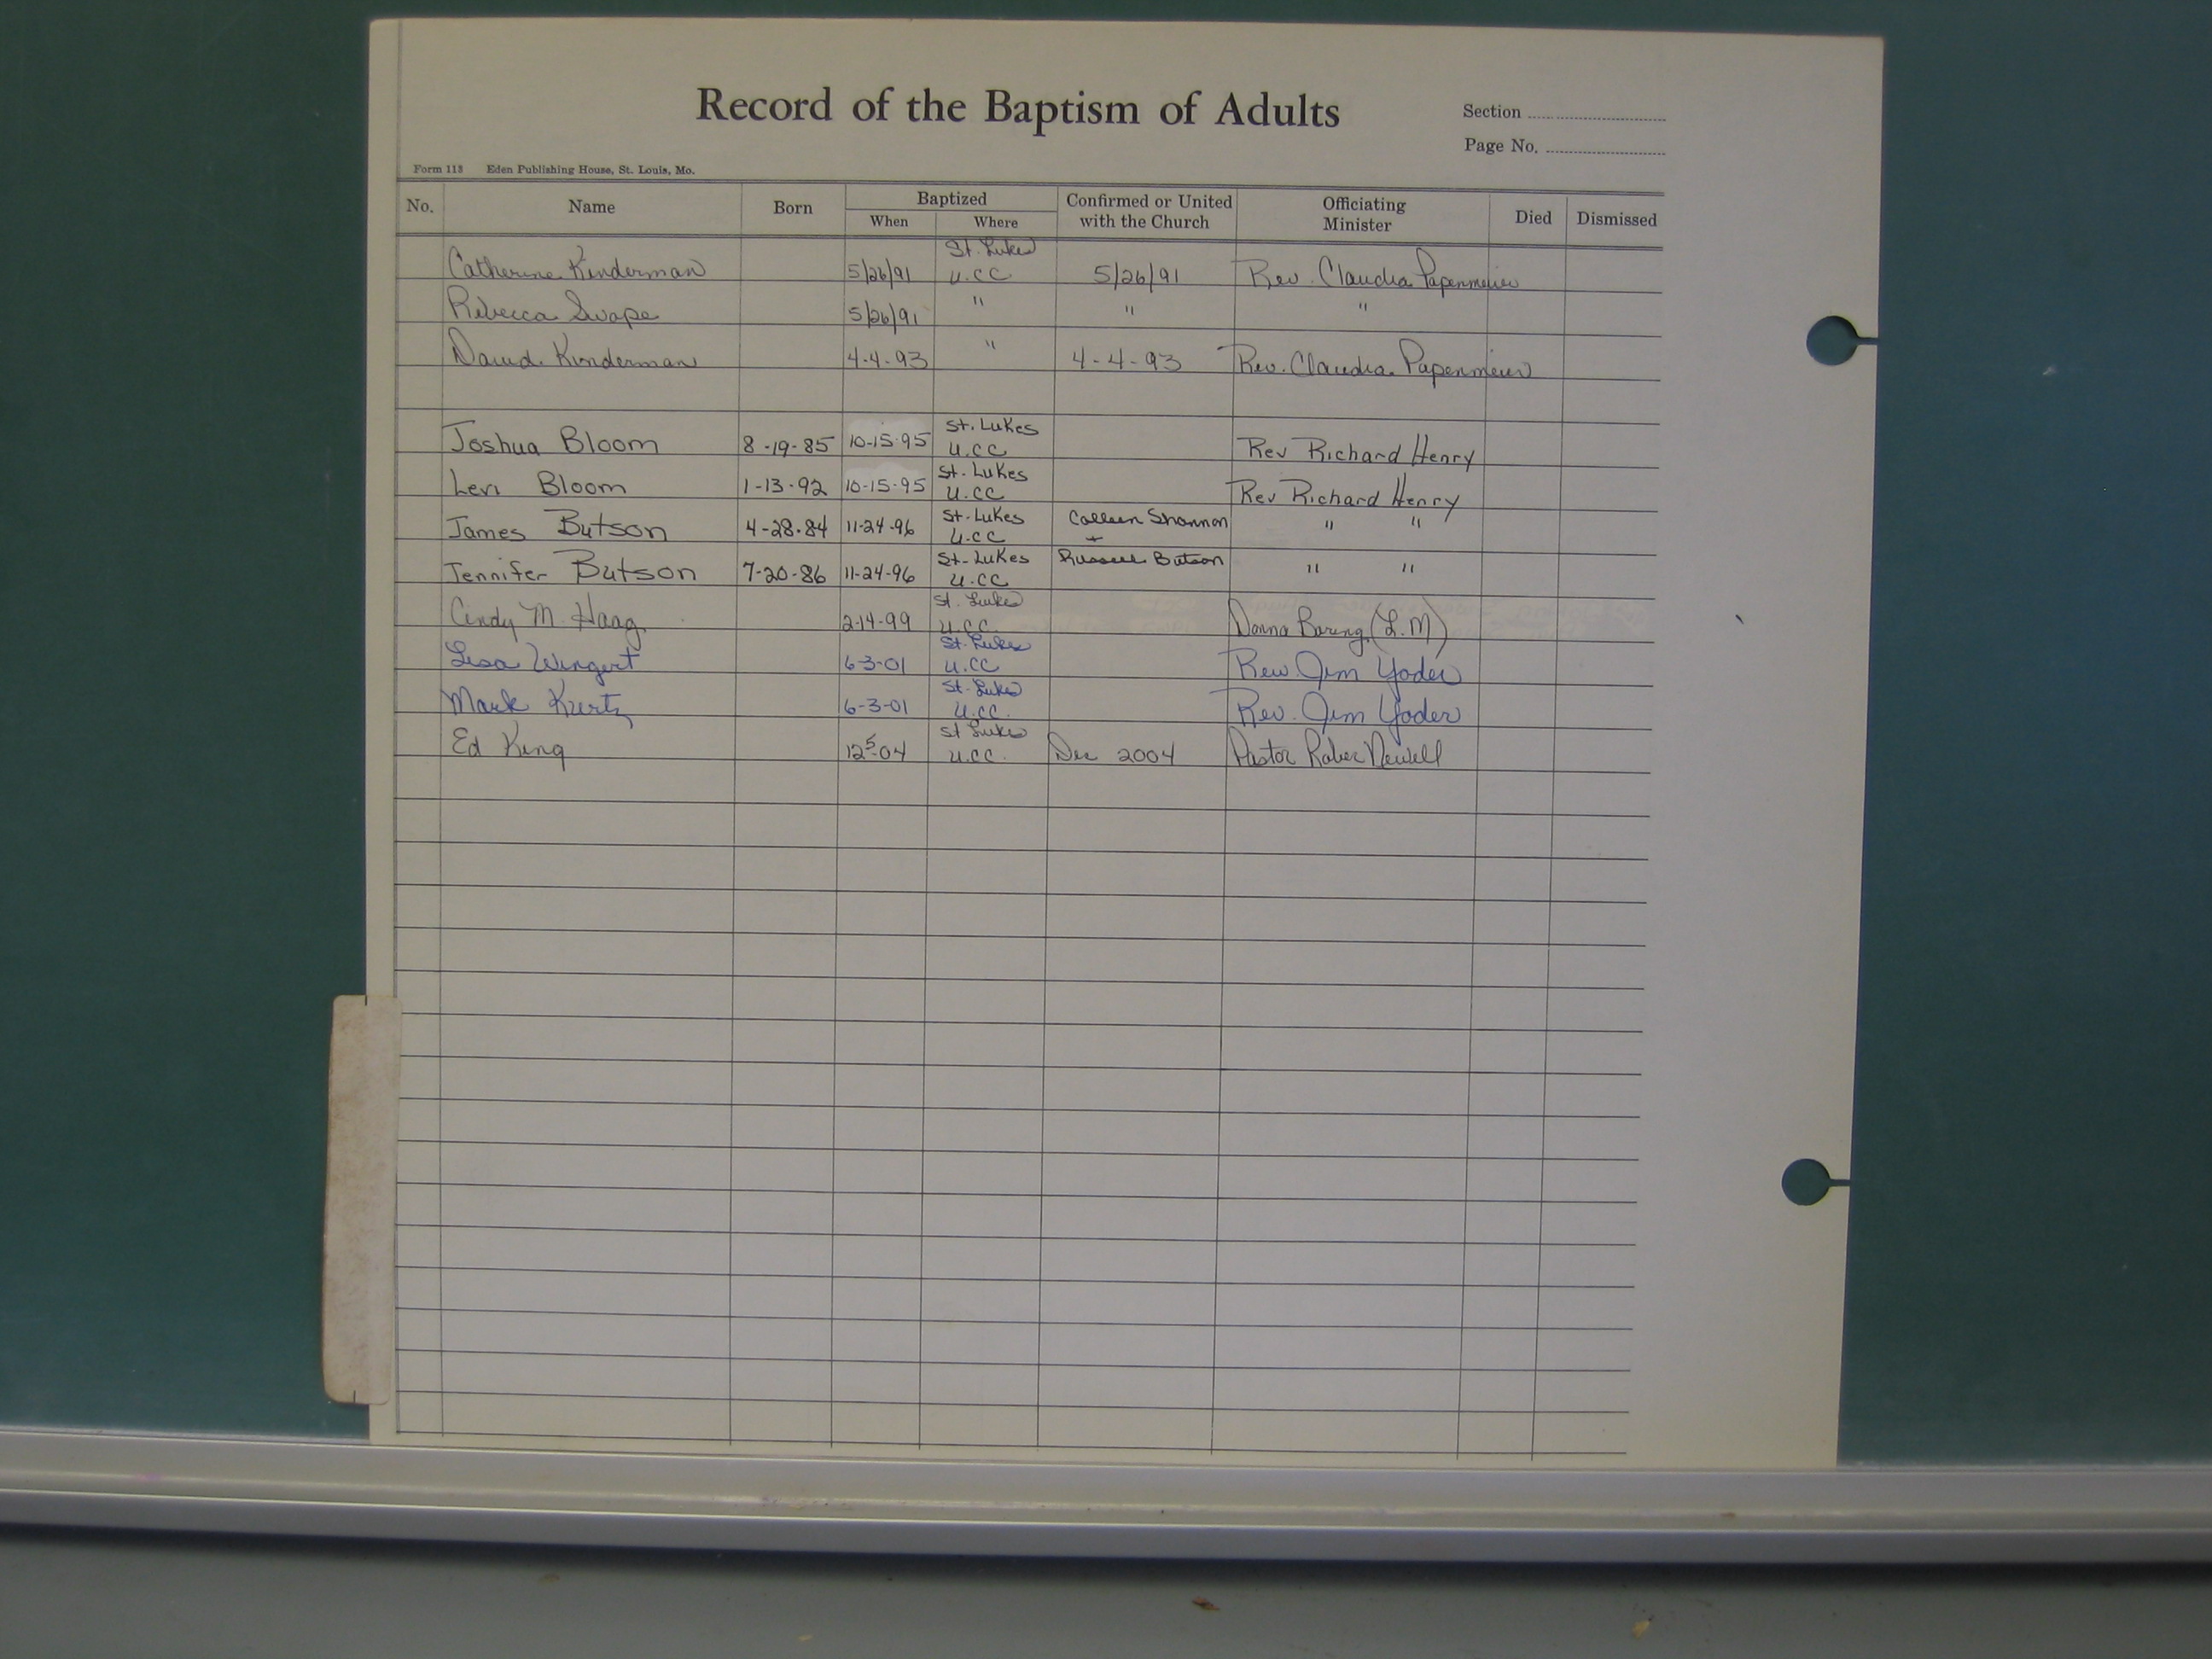 Record of the Baptism of Adults
Section
Page No.
Form 113 Eden Publishing House, St. Louis, Mo.
No. Name Born Baptized When Where Confirmed or United with the Church Officiating Minister Died Dismissed
Catherine Kinderman 5/26/91 St. Lukes U.CC 5/26/91 Rev. Claudia Papenmeier
Rebecca Swope 5/26/91 " " "
David Kinderman 4-4-93 " 4-4-93 Rev. Claudia Papenmeier
Joshua Bloom 8-19-85 10-15-95 St. Lukes U.CC Rev Richard Henry
Levi Bloom 1-13-92 10-15-95 St. Lukes U.CC Rev Richard Henry
James Butson 4-28-84 11-24-96 St. Lukes U.CC Colleen Shannon + " "
Jennifer Butson 7-20-86 11-24-96 St. Lukes U.CC Russell Butson " "
Cindy M. Haag 2-14-99 St. Lukes U.CC. Donna (L.M)
Lisa Wingert 6-3-01 St. Lukes U.CC Rev. Jim Yoder
Mark Kurtz 6-3-01 St. Lukes U.CC. Rev. Jim Yoder
Ed King 12-5-04 St Lukes U.CC. Dec 2004 Pastor Newell